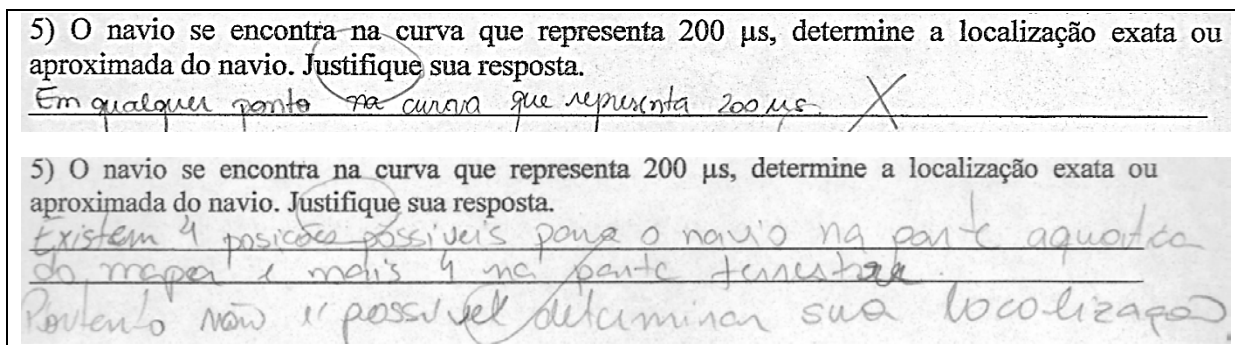 5) O navio se encontra na curva que representa 200 µs, determine a localização exata ou
aproximada do navio. Justifique sua resposta.
Em qualquer ponto na curva que representa 200 µs.
5) O navio se encontra na curva que representa 200 µs, determine a localização exata ou
aproximada do navio. Justifique sua resposta.
Existem 4 posições possíveis para o navio na parte aquatica
do mapa e mais 4 na parte terrestre.
Portanto não é possível determinar sua localização.